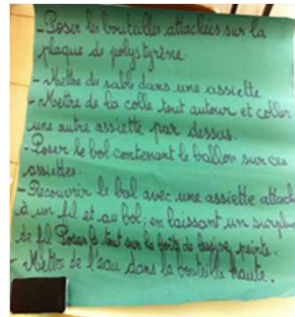 - Poser les bouteilles attachées sur la
plaque de polystyrène.
- Mettre du sable dans une assiette
- Mettre de la colle tout autour et coller
une autre assiette par dessus.
- Poser le bol contenant le ballon sur ces
assiettes.
- Recouvrir le bol avec une assiette attach
à un fil et au bol, en laissant un surplus
de fil Poser le tout sur la boîte de peinte.
- Mettre de l'eau dans la bouteille haute.